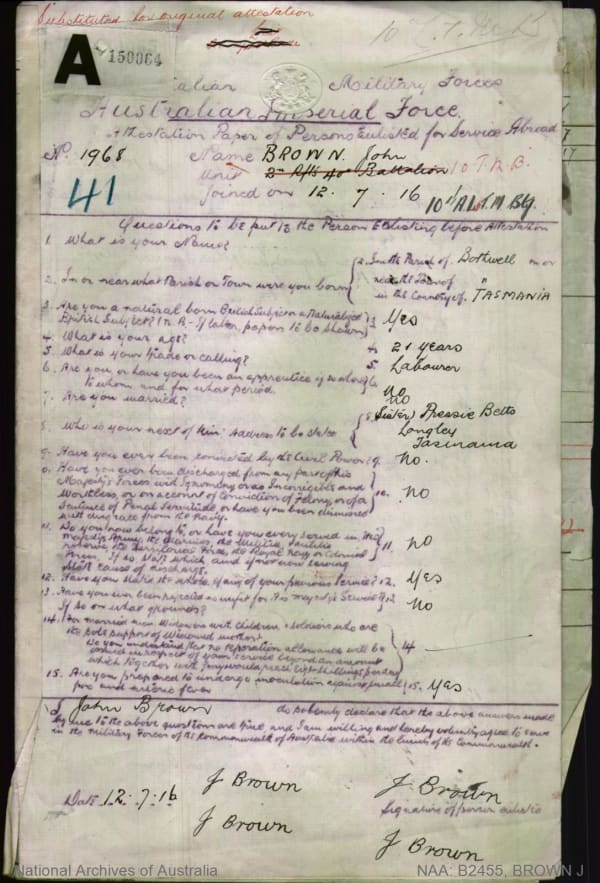 Substituted for original attestation
A 150064
Australian Military Forces
Australian Imperial Force.
Attestation Paper of Persons Enlisted for Service Abroad
No. 1968 Name BROWN. John
Unit 2nd Rfts 40th Battalion 10 T.M.B.
41 Joined on 12. 7. 16
Questions to be put to the Person Enlisting before Attestation
1. What is your Name?
2. In or near what Parish or Town were you born
2. In the Parish of Bothwell in or
near the Town of
in the Country of TASMANIA
3. Are you a natural born British Subject or a Naturalized
British Subject? N.B. - If latter, papers to be shown 3 Yes
4. What is your age? 4 21 years
5. What is your trade or calling? 5. Labourer
6. Are you or have you been an apprentice if so where 6
to whom and for what period. no
7. Are you married? no
8. Who is your next of Kin? Address to be stated 8 (Sister) Betts
Longley
Tasmania
9. Have you ever been convicted by the Civil Power? 9. no.
Have you ever been discharged from any part of His
Majesty's Forces with Ignominy or as Incorrigible and
Worthless, or on account of Conviction of Felony, or of a 10. no
Sentence of Penal Servitude or have you been dismissed
with disgrace from the Navy.
11. Do you now belong to, or have you ever served in, His
Majesty's Army, the Marines, the Militia,
the Territorial Force, the Royal Navy or Colonial 11. no
Forces. If so State which and if not now serving
State cause of discharge.
12. Have you stated the whole if any of your previous Service? 12. Yes
13. Have you ever been rejected as unfit for His Majesty's Service? 13 no
If so on what grounds?
14. For married men Widowers with children & soldiers who are
the sole support of Widowed mother.
Do you understand that no separation allowance will be 14
issued in respect of your service beyond an amount
which together with pay would reach Eight shillings per day
15. Are you prepared to undergo inoculation against small 15. Yes
pox and enteric fever
I John Brown do solemnly declare that the above answers made
by me to the above questions are true and I am willing and hereby voluntarily agree to serve
in the Military Forces of the Commonwealth of Australia within the limits of the Commonwealth.
J Brown J Brown
Date 12. 7. 16 Signature of person enlisted
J Brown J Brown
National Archives of Australia NAA: B2455, BROWN J